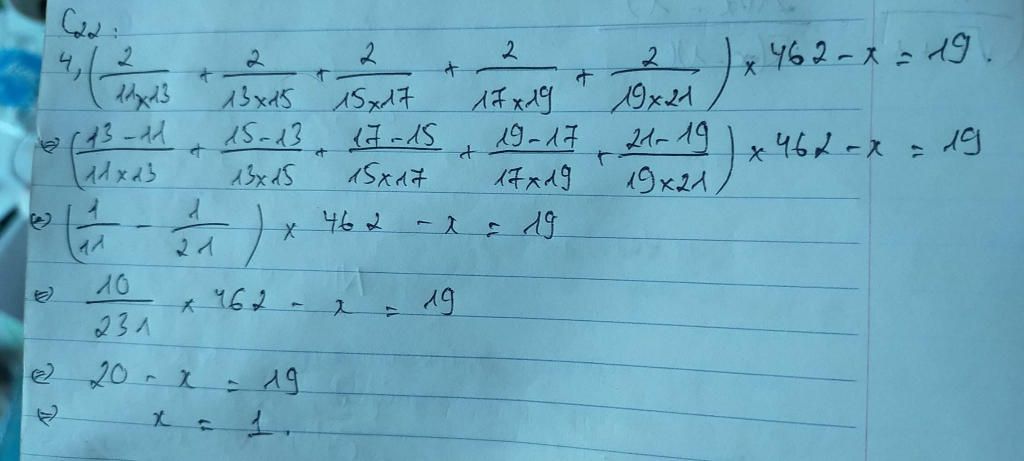 C22:
4, (2/11×13 + 2/13×15 + 2/15×17 + 2/17×19 + 2/19×21) × 462 - x = 19.
⇔ (13-11/11×13 + 15-13/13×15 + 17-15/15×17 + 19-17/17×19 + 21-19/19×21) × 462 - x = 19
⇔ (1/11 - 1/21) × 462 - x = 19
⇔ 10/231 × 462 - x = 19
⇔ 20 - x = 19
⇔ x = 1.